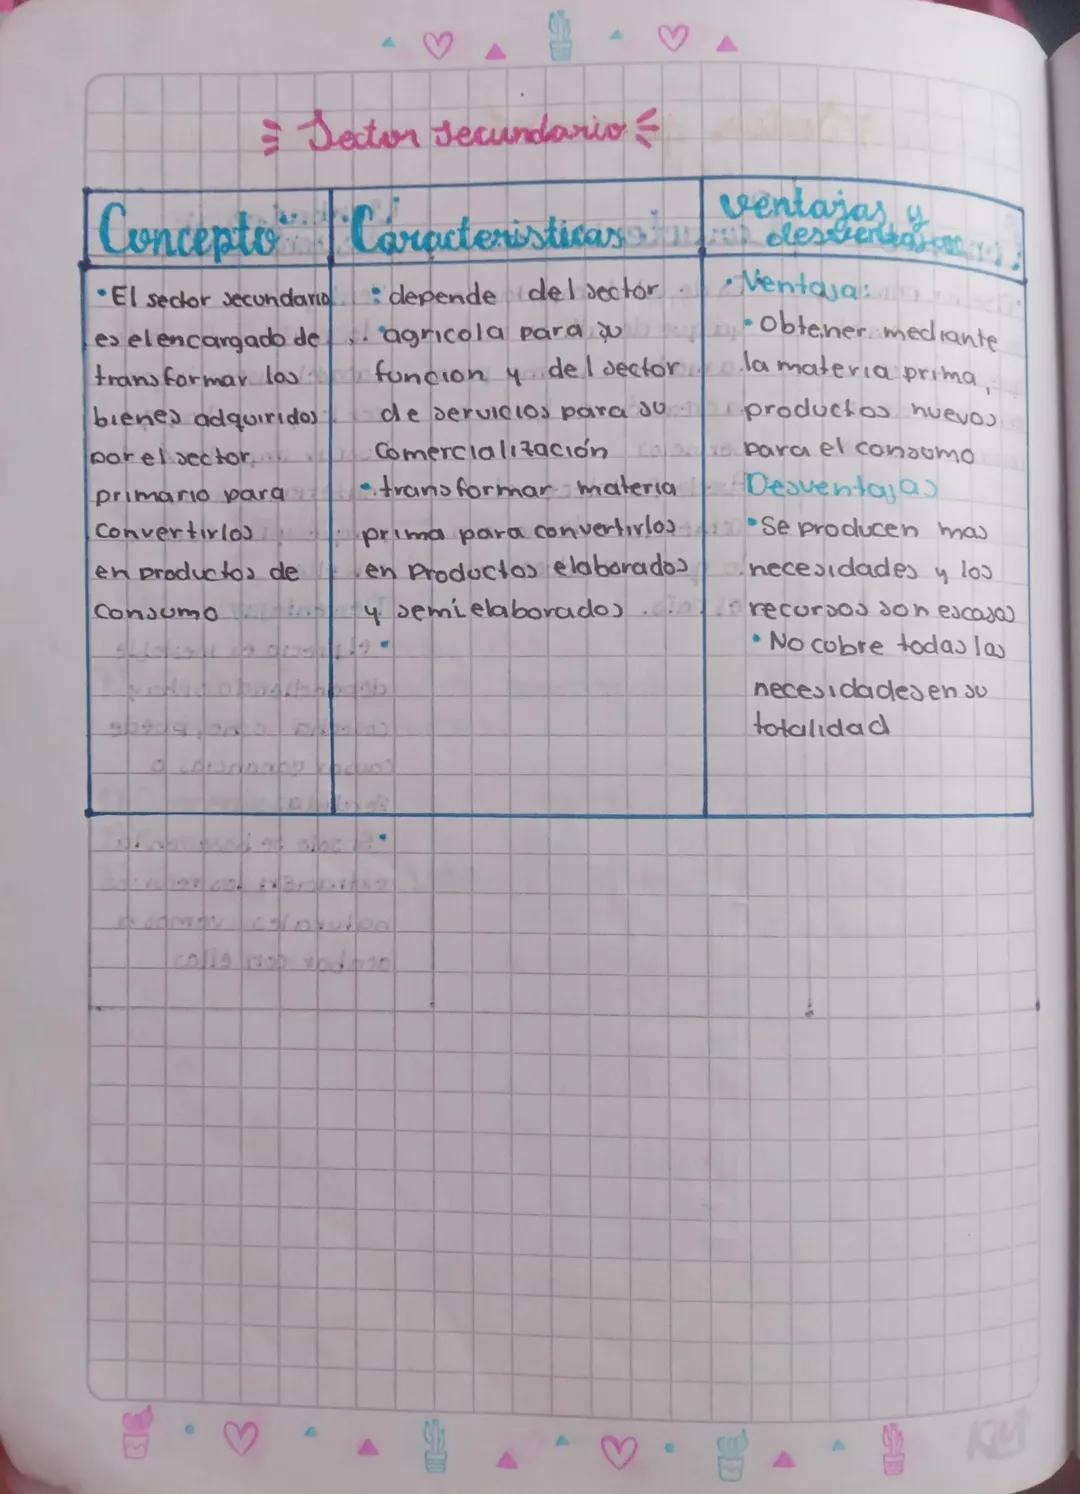 Sector secundario
Concepto
Caracteristicas
ventajas y
desventajas
• El sector secundario
es el encargado de
transformar los
bienes adquiridos
por el sector
primario para
convertirlos
en productos de
consumo
• depende del sector
agricola para su
funcion y del sector
de servicios para su
comercialización
• transformar materia
prima para convertirlos
en Productos elaborados
y semielaborados
• Ventaja:
• Obtener mediante
la materia prima,
productos nuevos
para el consumo
Desventajas
• Se producen mas
necesidades y los
recursos son escasos
• No cobre todas las
necesidades en su
totalidad